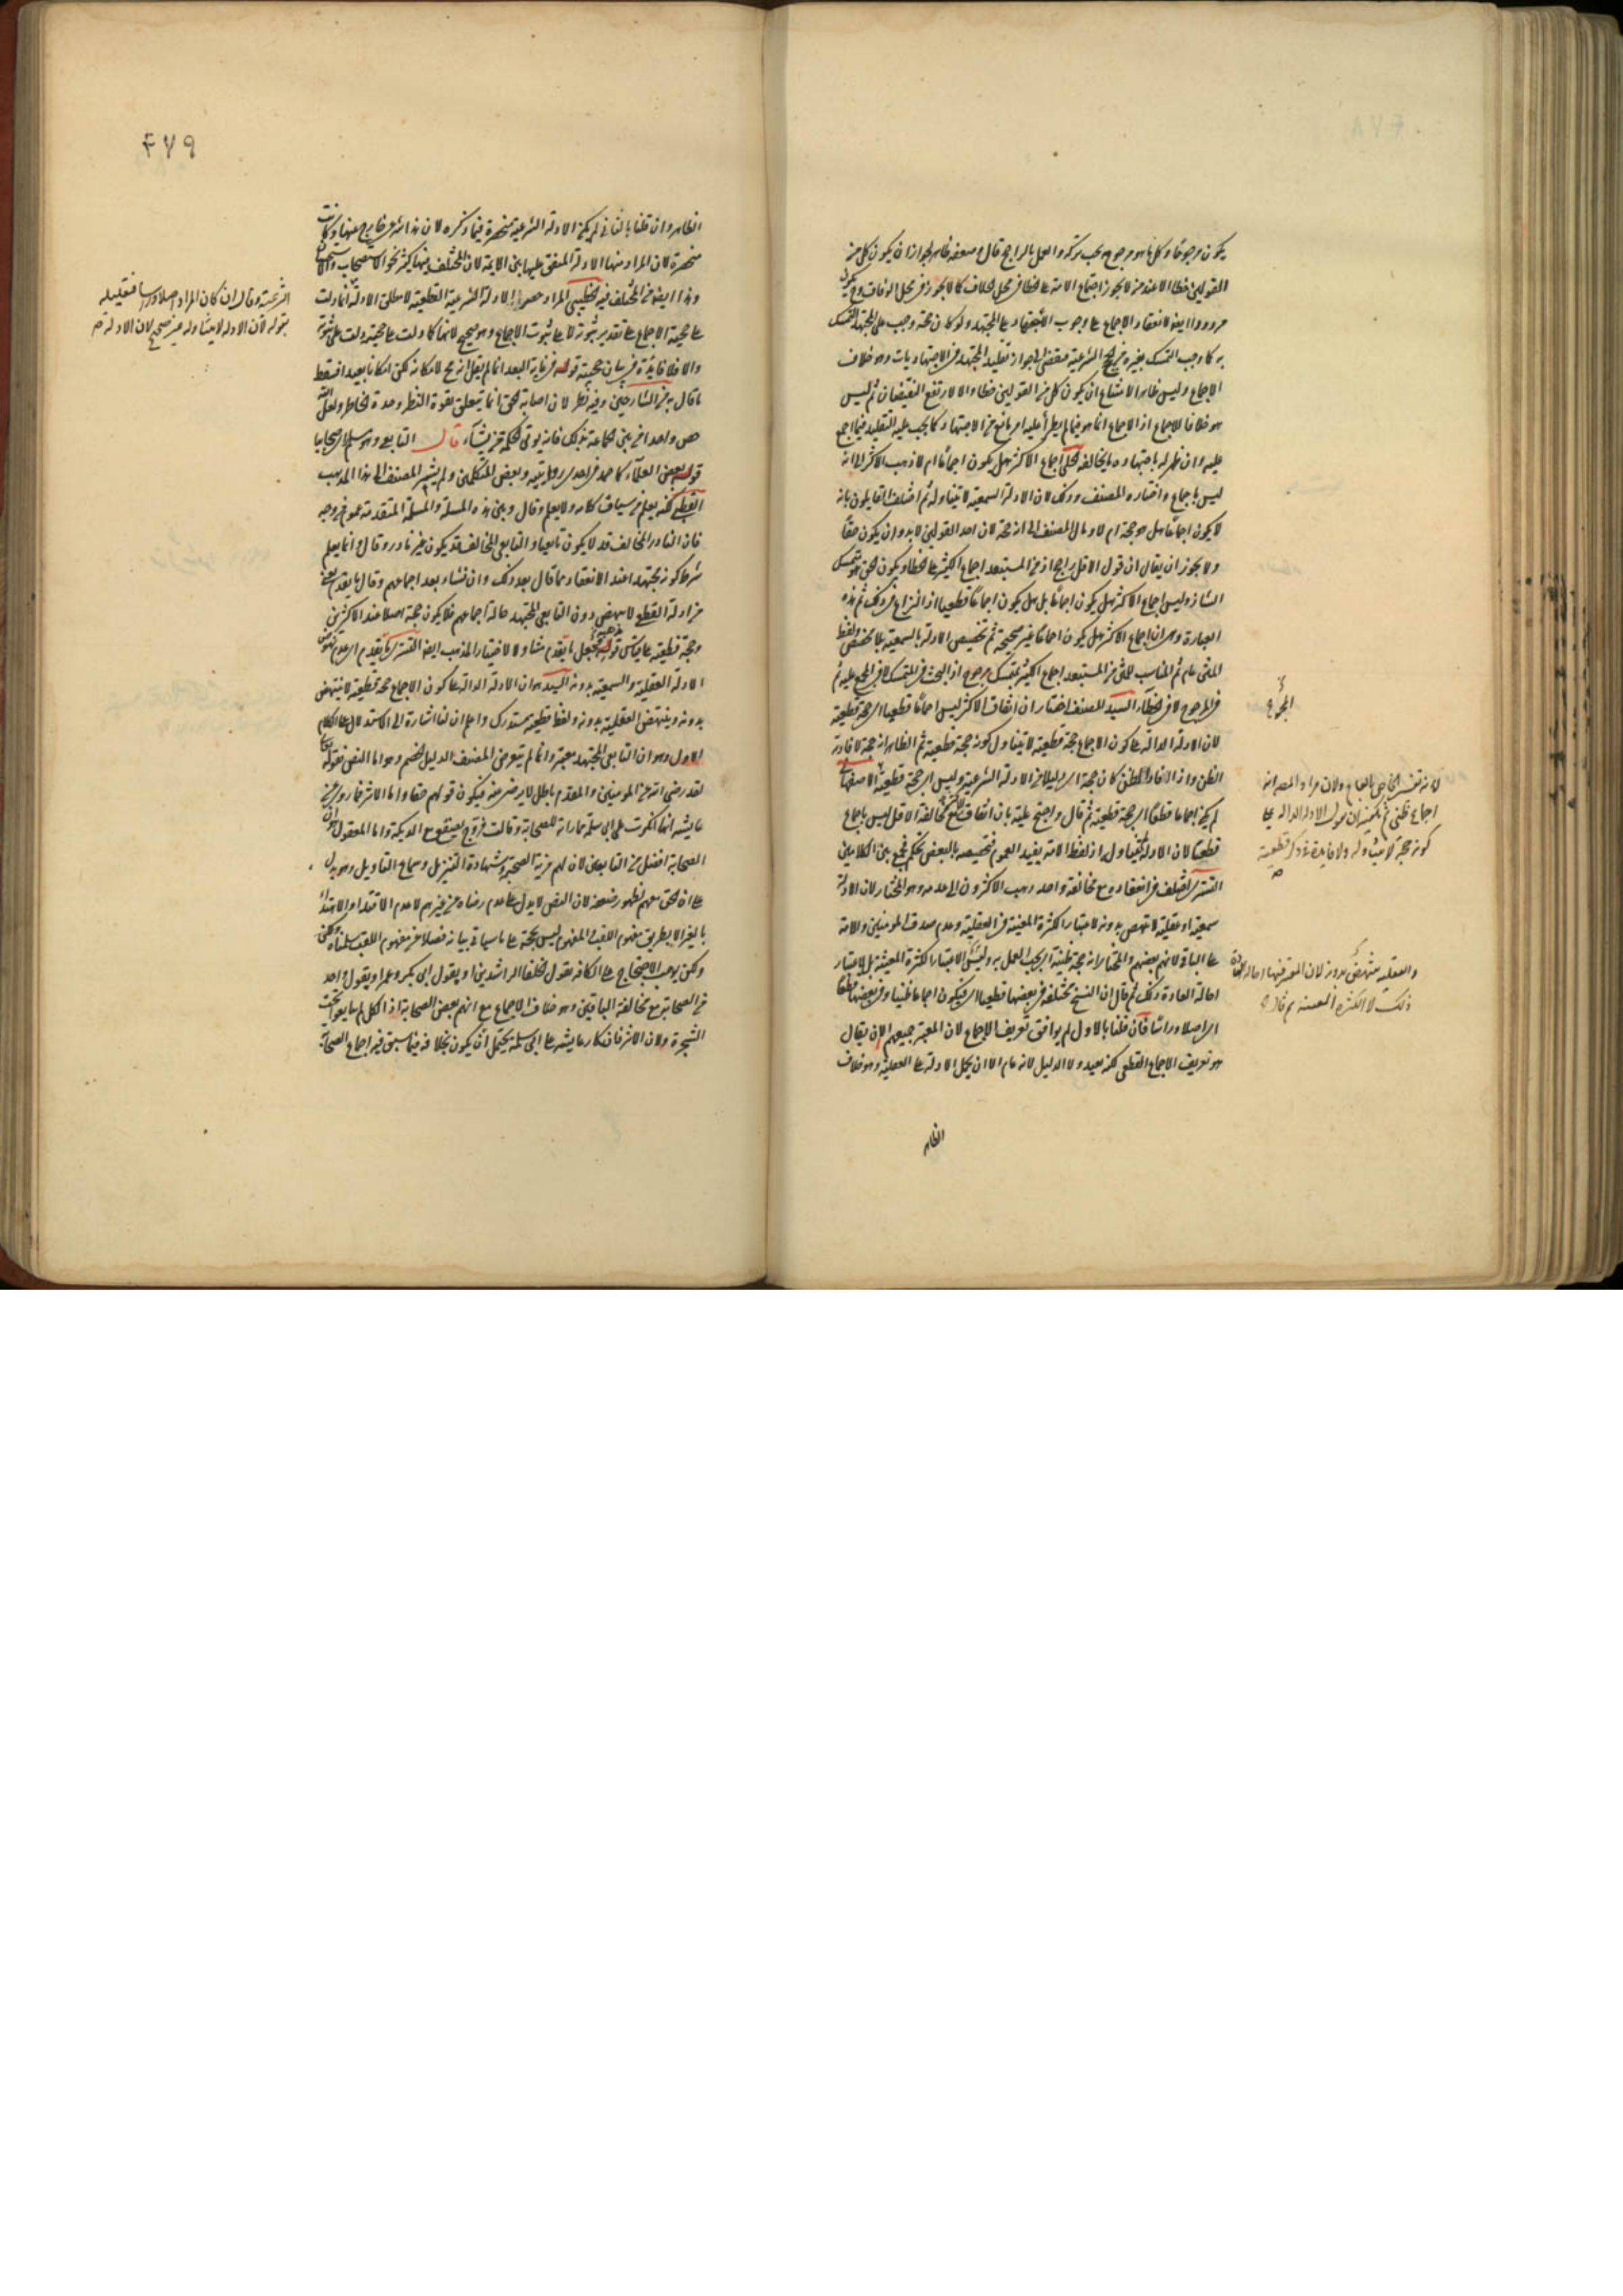 يكون مرجوحا وكل ما هو مرجوح يجب تركه والعمل بالراجح قال وضعفه ظاهر لجواز ان يكون كل من
القولين خطا الا عند من لا يجوز اجتماع الامة على الخطا في محل الخلاف كما لا يجوز في محل الوفاق
مردود ايضا لانعقاد الاجماع على وجوب الاجتهاد على المجتهد ولو كان حجة وجب على المجتهد التمسك
به كما وجب التمسك بغيره من الحجج الشرعية مفض الى جواز تقليد المجتهد في الاجتهاديات وهو خلاف
الاجماع وليس ظاهر الامتناع ان يكون كل من القولين خطا والا لارتفع النقيضان ثم ليس
هو خلافا للاجماع اذ الاجماع انما هو فيما لم يطرأ عليه امر مانع من الاجتهاد كما يجب عليه التقليد فيما اجمع
عليه وان ظهر له باجتهاده ما يخالفه اجماع الاكثر هل يكون اجماعا ام لا ذهب الاكثر الى انه
ليس باجماع واختاره المصنف وذلك لان الادلة السمعية لا تتناوله ثم اختلف القايلون بانه
لا يكون اجماعا هل هو حجة ام لا ومال المصنف الى انه حجة لان احد القولين لا بد وان يكون حقا
ولا يجوز ان يقال ان قول الاقل راجح اذ من المستبعد اجماع الكثير على الخطا ويكون الحق متمسك
الشاذ وليس اجماع الاكثر هل يكون اجماعا بل هل يكون اجماعا قطعيا اذ النزاع في ذلك ثم هذه
العبارة وهي ان اجماع الاكثر هل يكون اجماعا غير صحيحة ثم تخصيص الادلة بالسمعية بلا مخصص ولفظ
المتن عام ثم المناسب للمتن من المستبعد اجماع الكثير بمتمسك مرجوح اذ البحث في المتمسك لا في المجمع عليه ثم
في المرجوح لا في الخطأ السيد المصنف اختار ان اتفاق الاكثر ليس اجماعا قطعيا اي حجة قطعية
لان الادلة الدالة على كون الاجماع حجة قطعية لا تتناول كونه حجة قطعية ثم الظاهر انه حجة لافادته
الظن واذا افاد الظن كان حجة اي دليلا من الادلة الشرعية وليس اي حجة قطعية
لم يكن اجماعا قطعا اي حجة قطعية ثم قال واحتج عليه بان اتفاق مع مخالفة الاقل ليس باجماع
قطعيا لان الادلة لا تتناوله اذ لفظ الامة يفيد العموم فتخصيصه بالبعض تحكم فجمع بين الكلامين
التستري اختلف في انعقاده مع مخالفة واحد وذهب الاكثرون الى عدمه وهو المختار لان الادلة
سمعية او عقلية لا تنهض بدونه لاعتبار الكثرة المعينة في العقلية وعدم صدق المومنين والامة
على الباقي لانهم بعضهم والمختار انه حجة ظنية اي يجب العمل به وليس الاعتبار الكثرة المعينة بل لاعتبار
احالة العادة ذلك ثم قال ان النسخ مختلفة في بعضها قطعيا اي فيكون اجماعا ظنيا وفي بعضها قطعا
اي اصلا وراسا فان قلنا بالاول لم يوافق تعريف الاجماع لان المعتبر جميعهم الا ان يقال
هو تعريف الاجماع القطعي لكنه بعيد ولا الدليل لانه عام الا ان يحمل الادلة على العقلية وهو خلاف
الظاهر
المجموع
لانه تفسير الخاص بالعام ولان مراد المصنف انه
اجماع ظني ثم يلزم ان يكون الادلة الدالة على
كونه حجة لا يتناوله ولا فايدة في ذكر قطعية
والعقلية تنتهض بدونه لان المعتبر فيها احالة العادة
ذلك لا الكثرة المعينة ثم قال
٤٧٩
الظاهر وان قلنا بالثاني لم يكن الادلة الشرعية منحصرة فيما ذكره لان هذا شرعي خارج عنها وكانت
منحصرة لان المراد منها الادلة المتفق عليها بين الايمة لان المختلف منها كثير نحو الاستصحاب والاستحسان
وهذا ايضا من المختلف فيه الخطيبي المراد حصر الادلة الشرعية القطعية لا مطلق الادلة انما دلت
على حجية الاجماع على تقدير ثبوته لا على ثبوت الاجماع وهو صحيح لانها كما دلت على حجيته دلت على ثبوته
والا فلا فايدة في بيان حجيته قوله في غاية البعد انما لم يقل انه مح لامكانه لكن امكانا بعيدا فسقط
ما قال بعض الشارحين وفيه نظر لان اصابة الحق انما تتعلق بقوة النظر وحدة الخاطر ولعل الله
خص واحدا من بين الجماعة بذلك فانه يوتي الحكمة من يشاء قال التابعي وهو مسلم راى صحابيا
قوله بعض العلماء كاحمد في احدى روايتيه وبعض المتكلمين ولم يشر المصنف الى هذا المذهب
القطبي لكنه يعلم من سياق كلامه ولا يعلم وقال وبين هذه المسلة والمسلة المتقدمة عموم من وجه
فان النادر المخالف قد لا يكون تابعيا والتابعي المخالف قد يكون غير نادر وقال وانما يعلم
شرط كونه مجتهدا عند الانعقاد مما قال بعد ذلك وان نشاء بعد اجماعهم وقال ما يقدم يعني
من ادلة القطع لا ينهض دون التابعي المجتهد حالة اجماعهم فلا يكون حجة اصلا عند الاكثرين
وحجة قطعية على قياس قوله بجعل ما يقدم متناولا لاختيار المذهب ايضا التستري ما تقدم اي عدم نهوض
الادلة العقلية والسمعية بدونه السيد هو ان الادلة الدالة على كون الاجماع حجة قطعية لا ينتهض
بدونه وينتهض العقلية بدونه ولفظ قطعية مستدرك واعلم ان لنا اشارة الى الاستدلال على الحكم
الاول وهو ان التابعي المجتهد معتبر وانما لم يتعرض المصنف الدليل الخصم وهو اما النص فقوله تعالى
لقد رضي الله عن المومنين والمقدم باطل لا يرضى عنه فيكون قولهم حقا واما الاثر فما روي عن
عايشة انها انكرت على ابي سلمة مماراته للصحابة وقالت فروج يصقع مع الديكة واما المعقول فلان
الصحابة افضل من التابعين لان لهم مزية الصحبة وشهادة التنزيل وسماع التاويل وهو يدل
على ان الحق معهم لظهور ضعفه لان النص لا يدل على عدم رضاه عن غيرهم لا عدم الاقتداء والاهتداء
بالغير الا بطريق مفهوم اللقب والمفهوم ليس بحجة على ما سياتي بيانه فضلا عن مفهوم اللقب سلمناه لكن
ولكن يوجب الاحتجاج على الكافة بقول الخلفا الراشدين او بقول ابي بكر وعمر او بقول واحد
من الصحابة مع مخالفة الباقين وهو خلاف الاجماع مع انهم بعض الصحابة اذ الكل لم يبايعوا تحت
الشجرة ولان الاثر فانكار عايشة على ابي سلمة يحتمل ان يكون بخلافه فيما سبق فيه اجماع الصحابة
الشرعية وقال ان كان المراد اصلا وراسا فتعليله
بقوله لان الادلة لا يتناوله غير صحيح لان الادلة